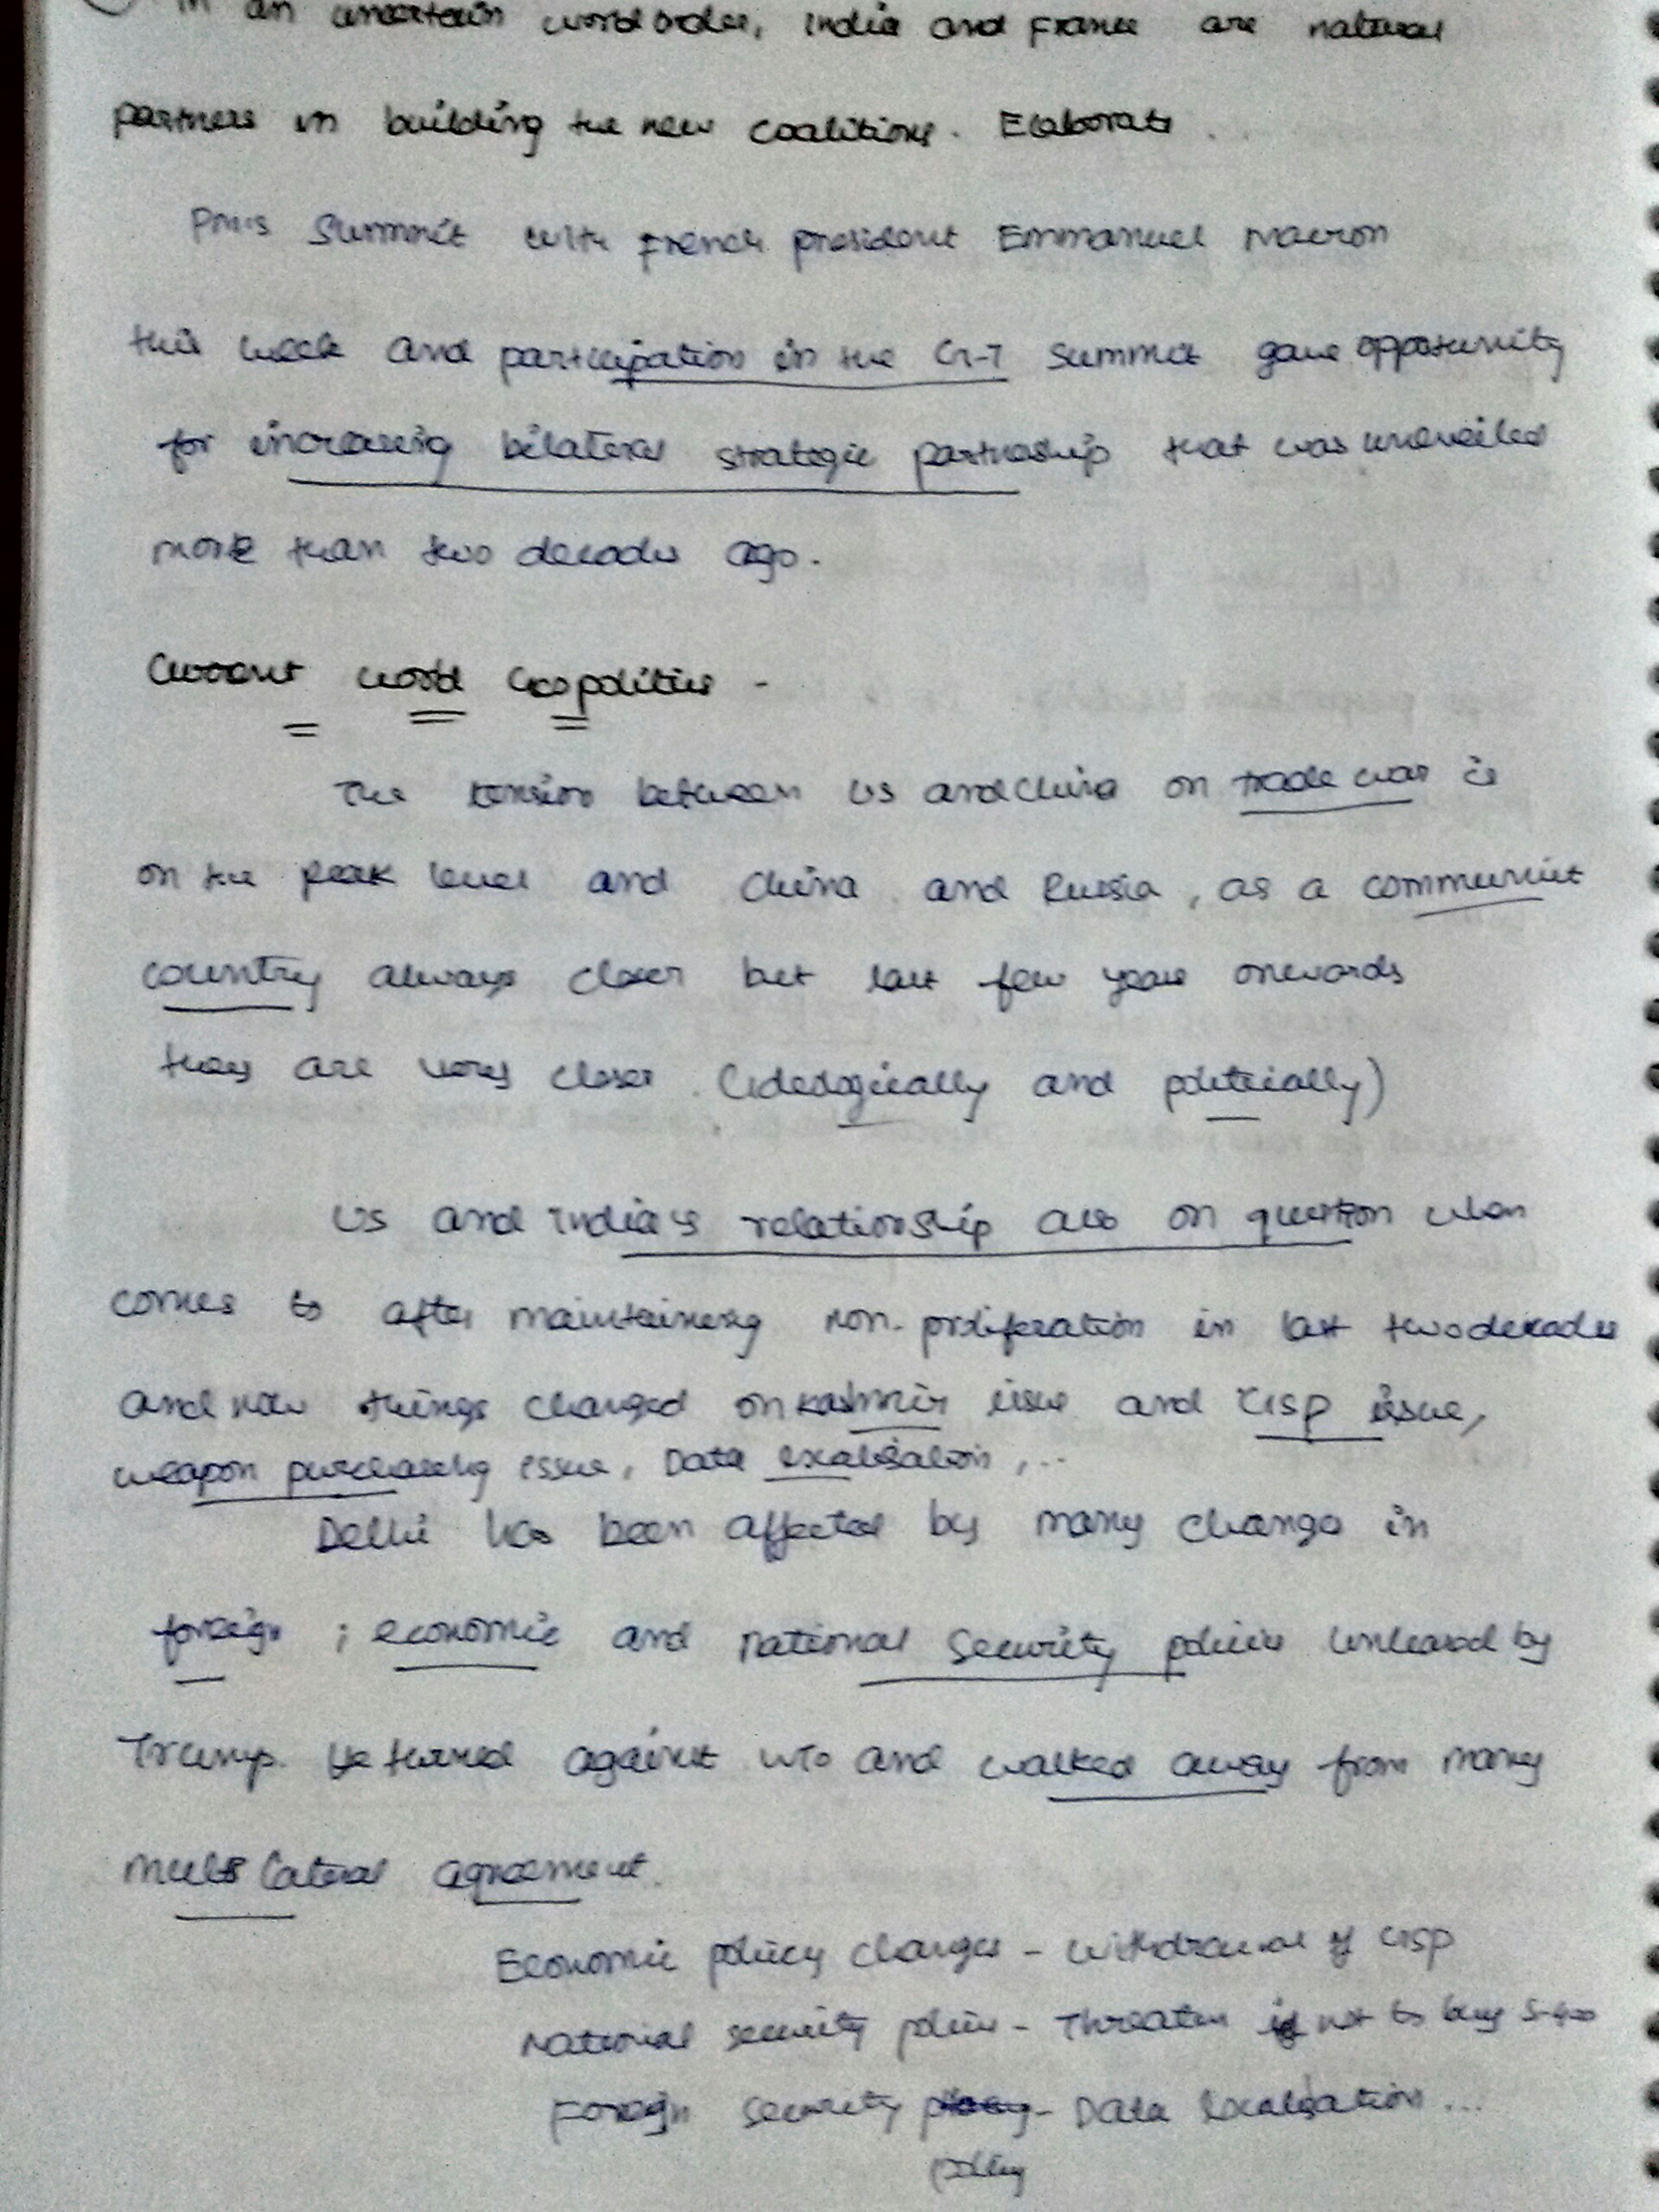 In an uncertain world order, India and France are natural
partners in building the new coalitions. Elaborate.
PM's Summit with French president Emmanuel Macron
this week and participation in the G-7 summit gave opportunity
for increasing bilateral strategic partnership that was unveiled
more than two decades ago.
Current world Geopolitics -
The tension between US and China on trade war is
on the peak level and China and Russia, as a communist
country always closer but last few years onwards
they are very closer (idelogically and politically)
US and India's relationship also on question when
comes to after maintaining non-proliferation in last two decades
and now things changed on Kashmir issue and GSP issue,
weapon purchasing issue, Data localisation, ...
Delhi has been affected by many change in
foreign, economic and national security policies unleased by
Trump. He turned against WTO and walked away from many
multi lateral agreement.
Economic policy changes - withdrawal of GSP
National security policies - Threaten if not to buy S-400
Foreign security policy - Data localisation...